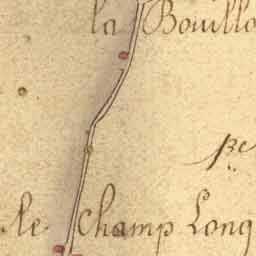 la Bouillo
pre
le Champ Long